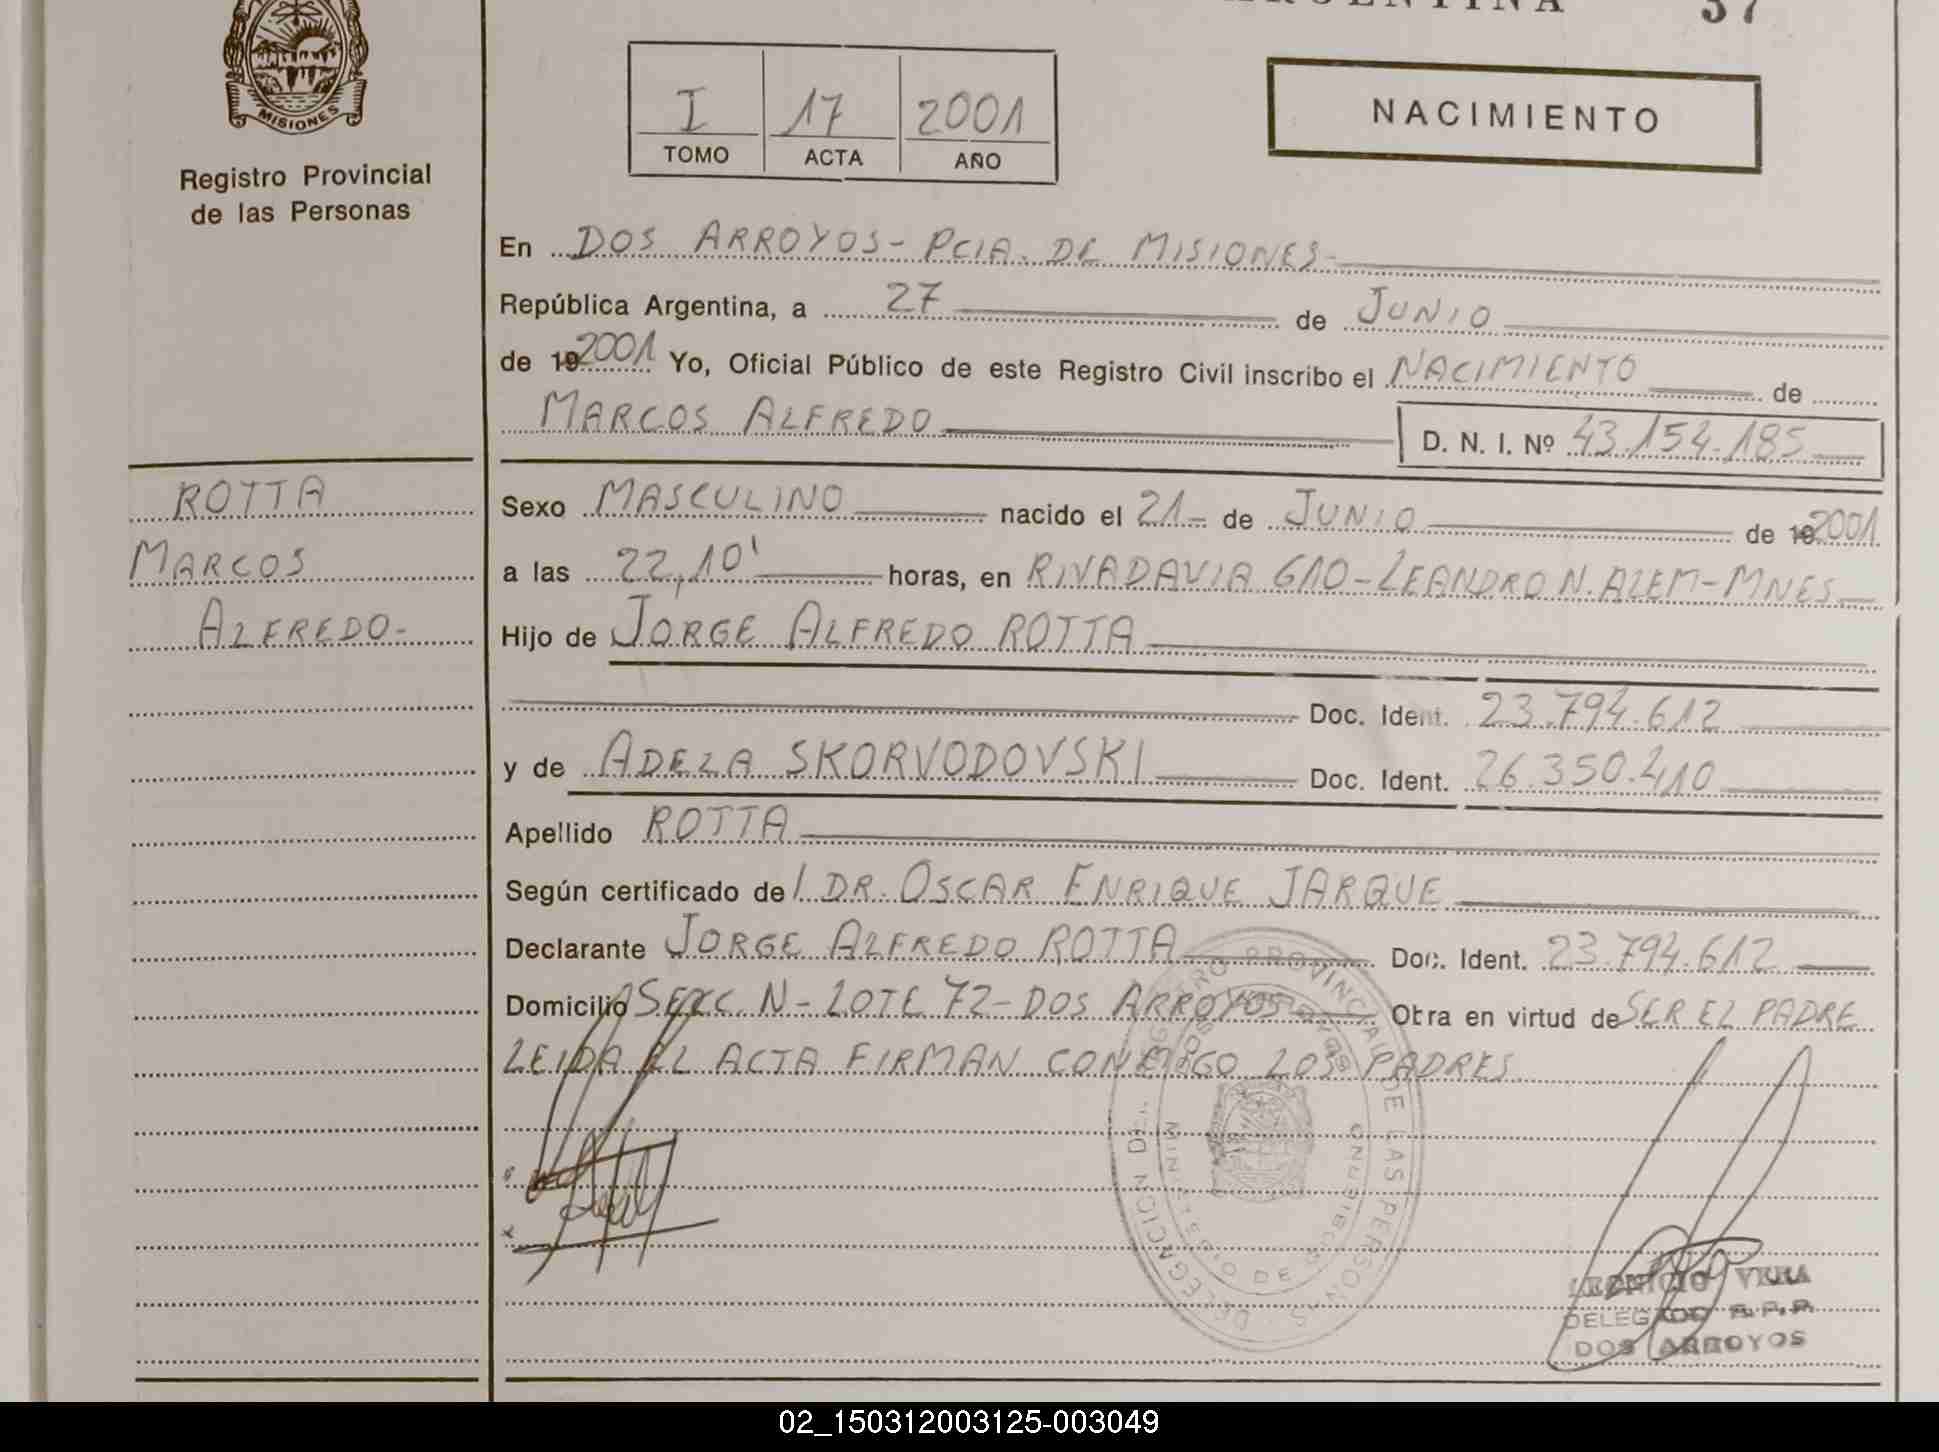 ARGENTINA 37
MISIONES
Registro Provincial
de las Personas
I 17 2001
TOMO ACTA AÑO
NACIMIENTO
En DOS ARROYOS - PCIA. DE MISIONES -
República Argentina, a 27 de JUNIO
de 19 2001 Yo, Oficial Público de este Registro Civil inscribo el NACIMIENTO de
MARCOS ALFREDO D. N. I. Nº 43.154.185
ROTTA
MARCOS
ALFREDO -
Sexo MASCULINO nacido el 21 - de JUNIO de 19 2001
a las 22,10' horas, en RIVADAVIA 610 - LEANDRO N. ALEM - MNES.
Hijo de JORGE ALFREDO ROTTA
Doc. Ident. 23.794.612
y de ADELA SKORVODOVSKI Doc. Ident. 26.350.210
Apellido ROTTA
Según certificado de l DR. OSCAR ENRIQUE JARQUE
Declarante JORGE ALFREDO ROTTA Doc. Ident. 23.794.612
Domicilio SECC. N - LOTE 72 - DOS ARROYOS Obra en virtud de SER EL PADRE
LEIDA EL ACTA FIRMAN CONMIGO LOS PADRES.
REGISTRO PROVINCIAL DE LAS PERSONAS - DELEGACION DOS ARROYOS
MINISTERIO DE GOBIERNO
LEONICIO VERA
DELEGADO R.P.P.
DOS ARROYOS
02_150312003125-003049